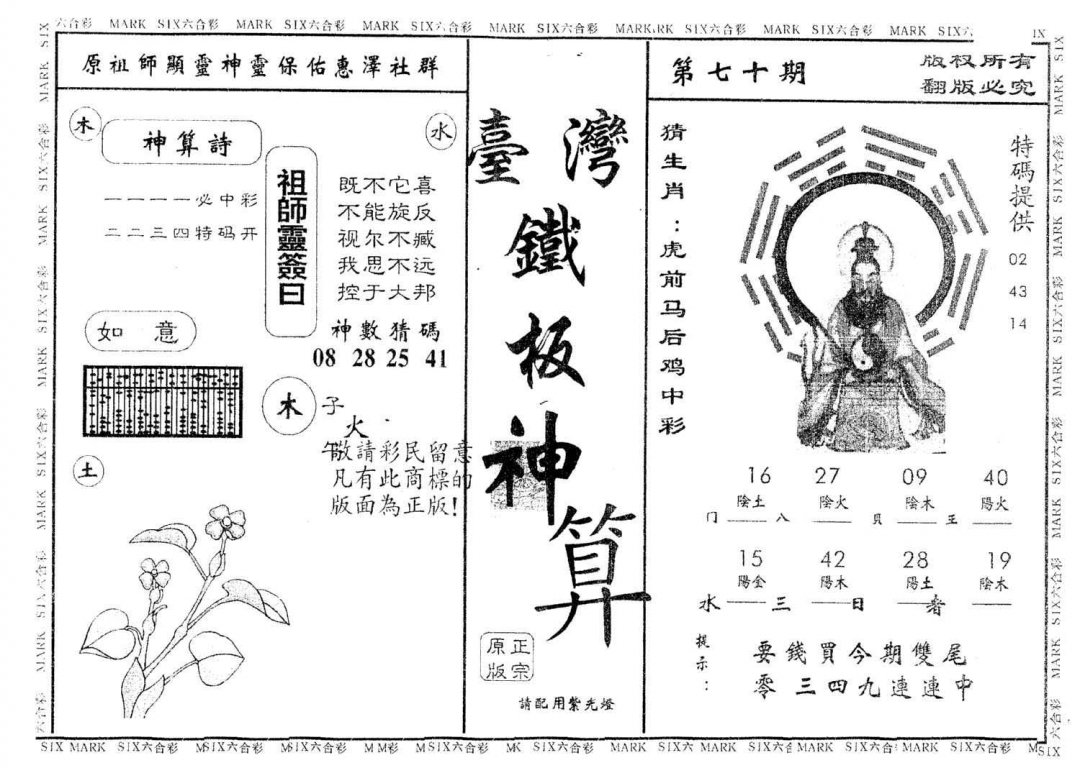 六合彩 MARK SIX六合彩 MARK SIX六合彩 MARK SIX六合彩 MARK SIX六合彩 MARK SIX六合彩 MARK SIX六合彩 MARK SIX
原祖師顯靈神靈保佑惠澤社群
木
神算詩
水
一一一一必中彩
二二三四特码开
祖師靈簽曰
既不它喜
不能旋反
视尔不臧
我思不远
控于大邦
神數猜碼
08 28 25 41
如 意
木
子
火
午敬請彩民留意
凡有此商標的
版面為正版!
土
臺灣
鐵
板
神
算
正宗
原版
請配用紫光燈
第七十期
版权所有
翻版必究
猜生肖：虎前马后鸡中彩
特碼提供
02
43
14
16 27 09 40
陰土 陰火 陰木 陽火
门 八 贝 王
15 42 28 19
陽金 陽木 陽土 陰木
水 三 日 春
提示：
要錢買今期雙尾
零三四九連連中
SIX MARK SIX六合彩 MSIX六合彩 MSIX六合彩 M M彩 MSIX六合彩 MK SIX六合彩 MARK SIX六 MARK SIX六合 MARK SIX六合 MARK SIX六合彩 MSIX